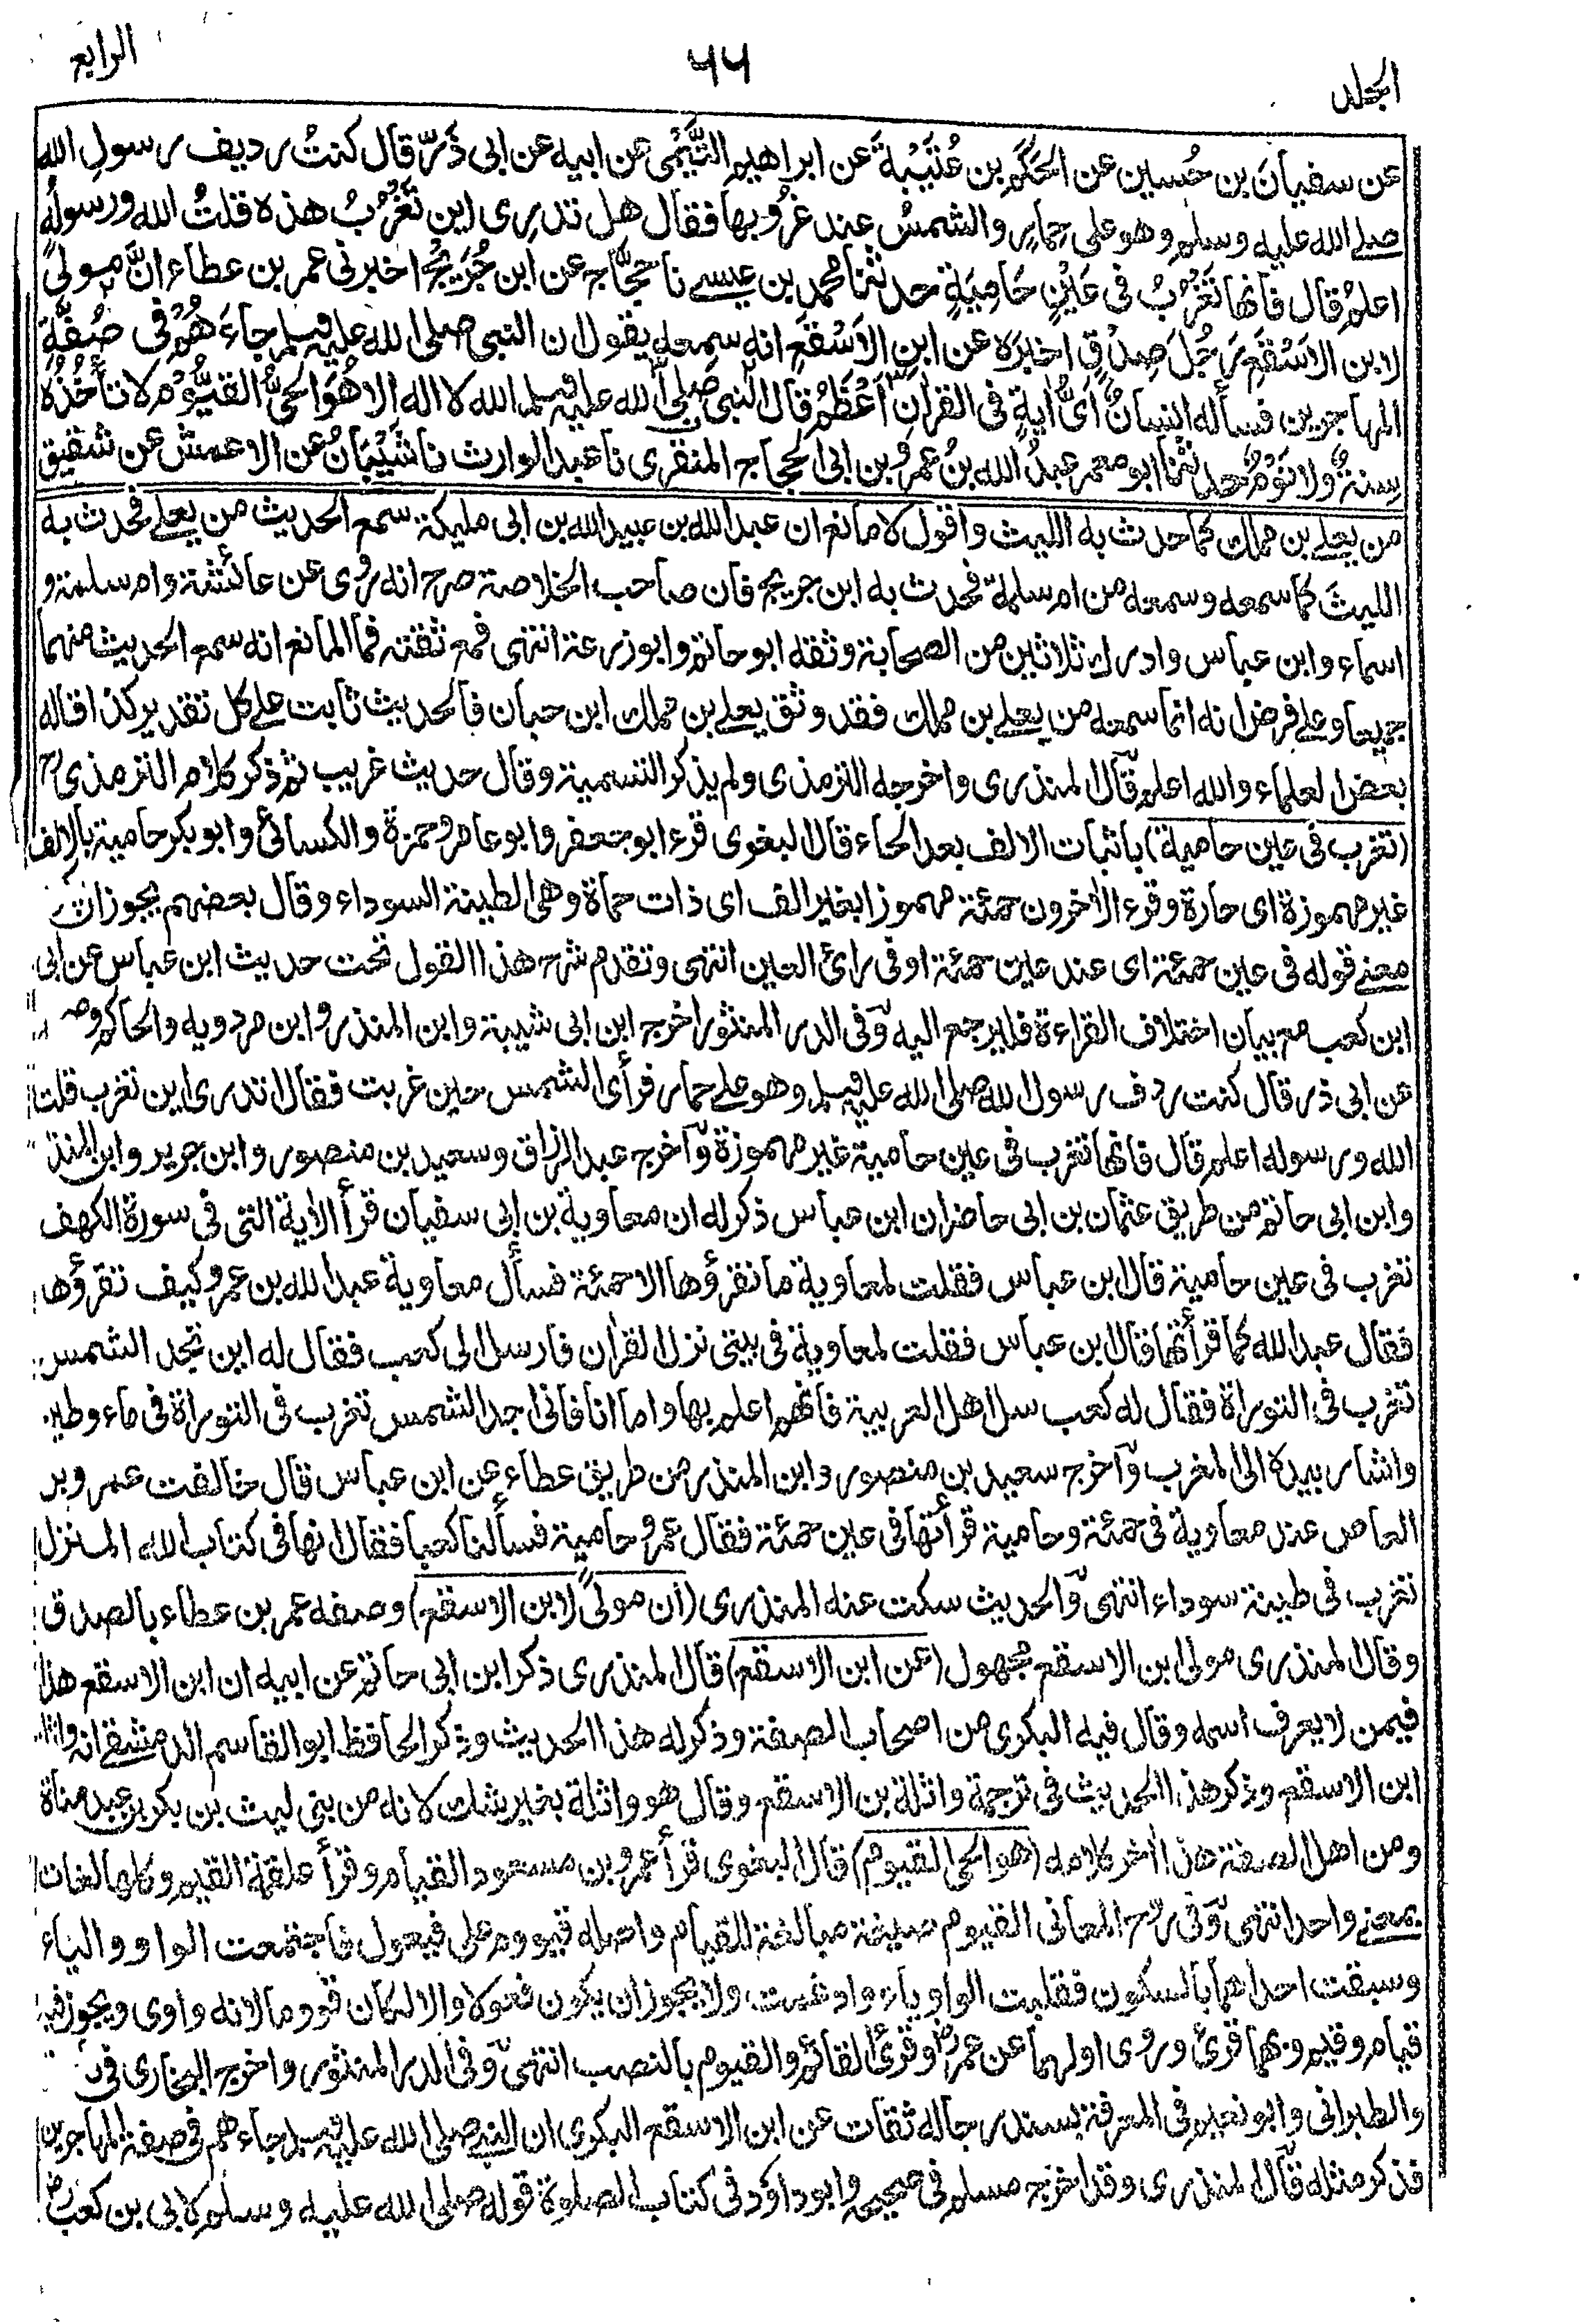 المجلد
٦٦
الرابع
عن سفيانَ بن حُسين عن الحَكَم بن عُتَيْبَةَ عن ابراهيم التَّيْمِى عن ابيه عن ابى ذَرّ قال كنتُ رديف رسولِ الله
صلے الله عليه وسلم وهو على حِمارٍ والشمسُ عند غُرُوبها فقال هل تدرِى اين تَغْرُبُ هذه قلتُ الله ورسولُه
اعلمُ قال فانها تَغْرُبُ فى عَيْنٍ حَامِيَةٍ حدثنا محمد بن عيسے نا حجّاج عن ابن جُرَيْجٍ اخبرنى عمر بن عطاء انَّ مولىً
لابن الاَسْقَع رَجُلَ صِدْقٍ اخبرَه عن ابنِ الاَسْقَعِ انه سمعه يقول ان النبى صلى الله عليه وسلم جاءَ هُمْ فى صُفَّةِ
المهاجرين فسأله انسانٌ اَىُّ اٰيةٍ فى القراٰن اَعْظَمُ قال النبى صلى الله عليه وسلم الله لا اله الا هُوَ الحىُّ القيُّوْمُ لا تأخُذُهٗ
سِنةٌ ولا نَوْمٌ حدثنا ابو معمر عبدُ الله بنُ عمرِو بن ابى الحجاج المنقرى نا عبد الوارث نا شَيْبَانُ عن الاعمش عن شقيق
من يعلے بن مملك كما حدث به الليث واقول لا مانع ان عبد الله بن عبيد الله بن ابى مليكة سمع الحديث من يعلے فحدث به
الليثَ كما سمعه وسمعه من ام سلمة فحدث به ابن جريج فان صاحب الخلاصة صرح انه روى عن عائشة وام سلمة و
اسماء وابن عباس وادرك ثلاثين من الصحابة وثقه ابو حاتم وابو زرعة انتهى فمع ثقته فما المانع انه سمع الحديث منهما
جميعا وعلے فرض انه انما سمعه من يعلے بن مملك فقد وثق يعلے بن مملك ابن حبان فالحديث ثابت علے كل تقدير كذا قاله
بعض العلماء والله اعلم قال المنذرى واخرجه الترمذى ولم يذكر التسمية وقال حديث غريب ثم ذكر كلام الترمذى
(تغرب فى عين حامية) باثبات الالف بعد الحاء قال البغوى قرء ابو جعفر وابو عامر وحمزة والكسائى وابو بكر حامية بالالف
غير مهموزة اى حارة وقرء الاٰخرون حمئة مهموزا بغير الف اى ذات حماة وهى الطينة السوداء وقال بعضهم يجوز ان
معنے قوله فى عين حمئة اى عند عين حمئة او فى رائ العين انتهى وتقدم شرح هذا القول تحت حديث ابن عباس عن ابى
ابن كعب مع بيان اختلاف القراءة فليرجع اليه وفى الدر المنثور اخرج ابن ابى شيبة وابن المنذر وابن مردويه والحاكم
عن ابى ذر قال كنت ردف رسول الله صلى الله عليه وسلم وهو علے حمار فرأى الشمس حين غربت فقال تدرى اين تغرب قلت
الله ورسوله اعلم قال فانها تغرب فى عين حامية غير مهموزة واخرج عبد الرزاق وسعيد بن منصور وابن جرير وابن المنذر
وابن ابى حاتم من طريق عثمان بن ابى حاضر ان ابن عباس ذكر له ان معاوية بن ابى سفيان قرأ الاٰية التى فى سورة الكهف
تغرب فى عين حامية قال ابن عباس فقلت لمعاوية ما نقرؤها الا حمئة فسأل معاوية عبد الله بن عمرو كيف تقرؤها
فقال عبد الله كما قرأتها قال ابن عباس فقلت لمعاوية فى بيتى نزل القراٰن فارسل الى كعب فقال له اين تجد الشمس
تغرب فى التوراة فقال له كعب سل اهل العربية فانهم اعلم بها واما انا فانى اجد الشمس تغرب فى التوراة فى ماء وطين
واشار بيده الى المغرب واخرج سعيد بن منصور وابن المنذر من طريق عطاء عن ابن عباس قال خالفت عمرو بن
العاص عند معاوية فى حمئة وحامية قرأتها فى عين حمئة فقال عمرو حامية فسألنا كعبا فقال انها فى كتاب الله المنزل
تغرب فى طينة سوداء انتهى والحديث سكت عنه المنذرى (ان مولىً لابن الاسقع) وصفه عمر بن عطاء بالصدق
وقال المنذرى مولى ابن الاسقع مجهول (عن ابن الاسقع) قال المنذرى ذكر ابن ابى حاتم عن ابيه ان ابن الاسقع هذا
فيمن لا يعرف اسمه وقال فيه البكرى من اصحاب الصفة وذكر له هذا الحديث وذكر الحافظ ابو القاسم الدمشقے انه واثلة
ابن الاسقع وذكر هذا الحديث فى ترجمة واثلة بن الاسقع وقال هو واثلة بغير شك لانه من بنى ليث بن بكر بن عبد مناة
ومن اهل الصفة هذا اٰخر كلامه (هو الحى القيوم) قال البغوى قرأ عمرو بن مسعود القيام وقرأ علقمة القيم وكلها لغات
بمعنے واحد انتهى وفى روح المعانى القيوم صيغة مبالغة للقيام واصله قيووم على فيعول فاجتمعت الواو والياء
وسبقت احداهما بالسكون فقلبت الواو ياء وادغمت ولا يجوز ان يكون فعولا والا لكان قووما لانه واوى ويجوز فيه
قيام وقيم وبهما قرئ وروى اولهما عن عمر وقرئ القائم والقيوم بالنصب انتهى وفى الدر المنثور واخرج البخارى فى
والطبرانى وابو نعيم فى المعرفة بسند رجاله ثقات عن ابن الاسقع البكرى ان النبے صلى الله عليه وسلم جاءهم فى صفة المهاجرين
فذكر مثله قال المنذرى وقد اخرج مسلم فى صحيحه وابو داؤد فى كتاب الصلوة قوله صلى الله عليه وسلم لابى بن كعب